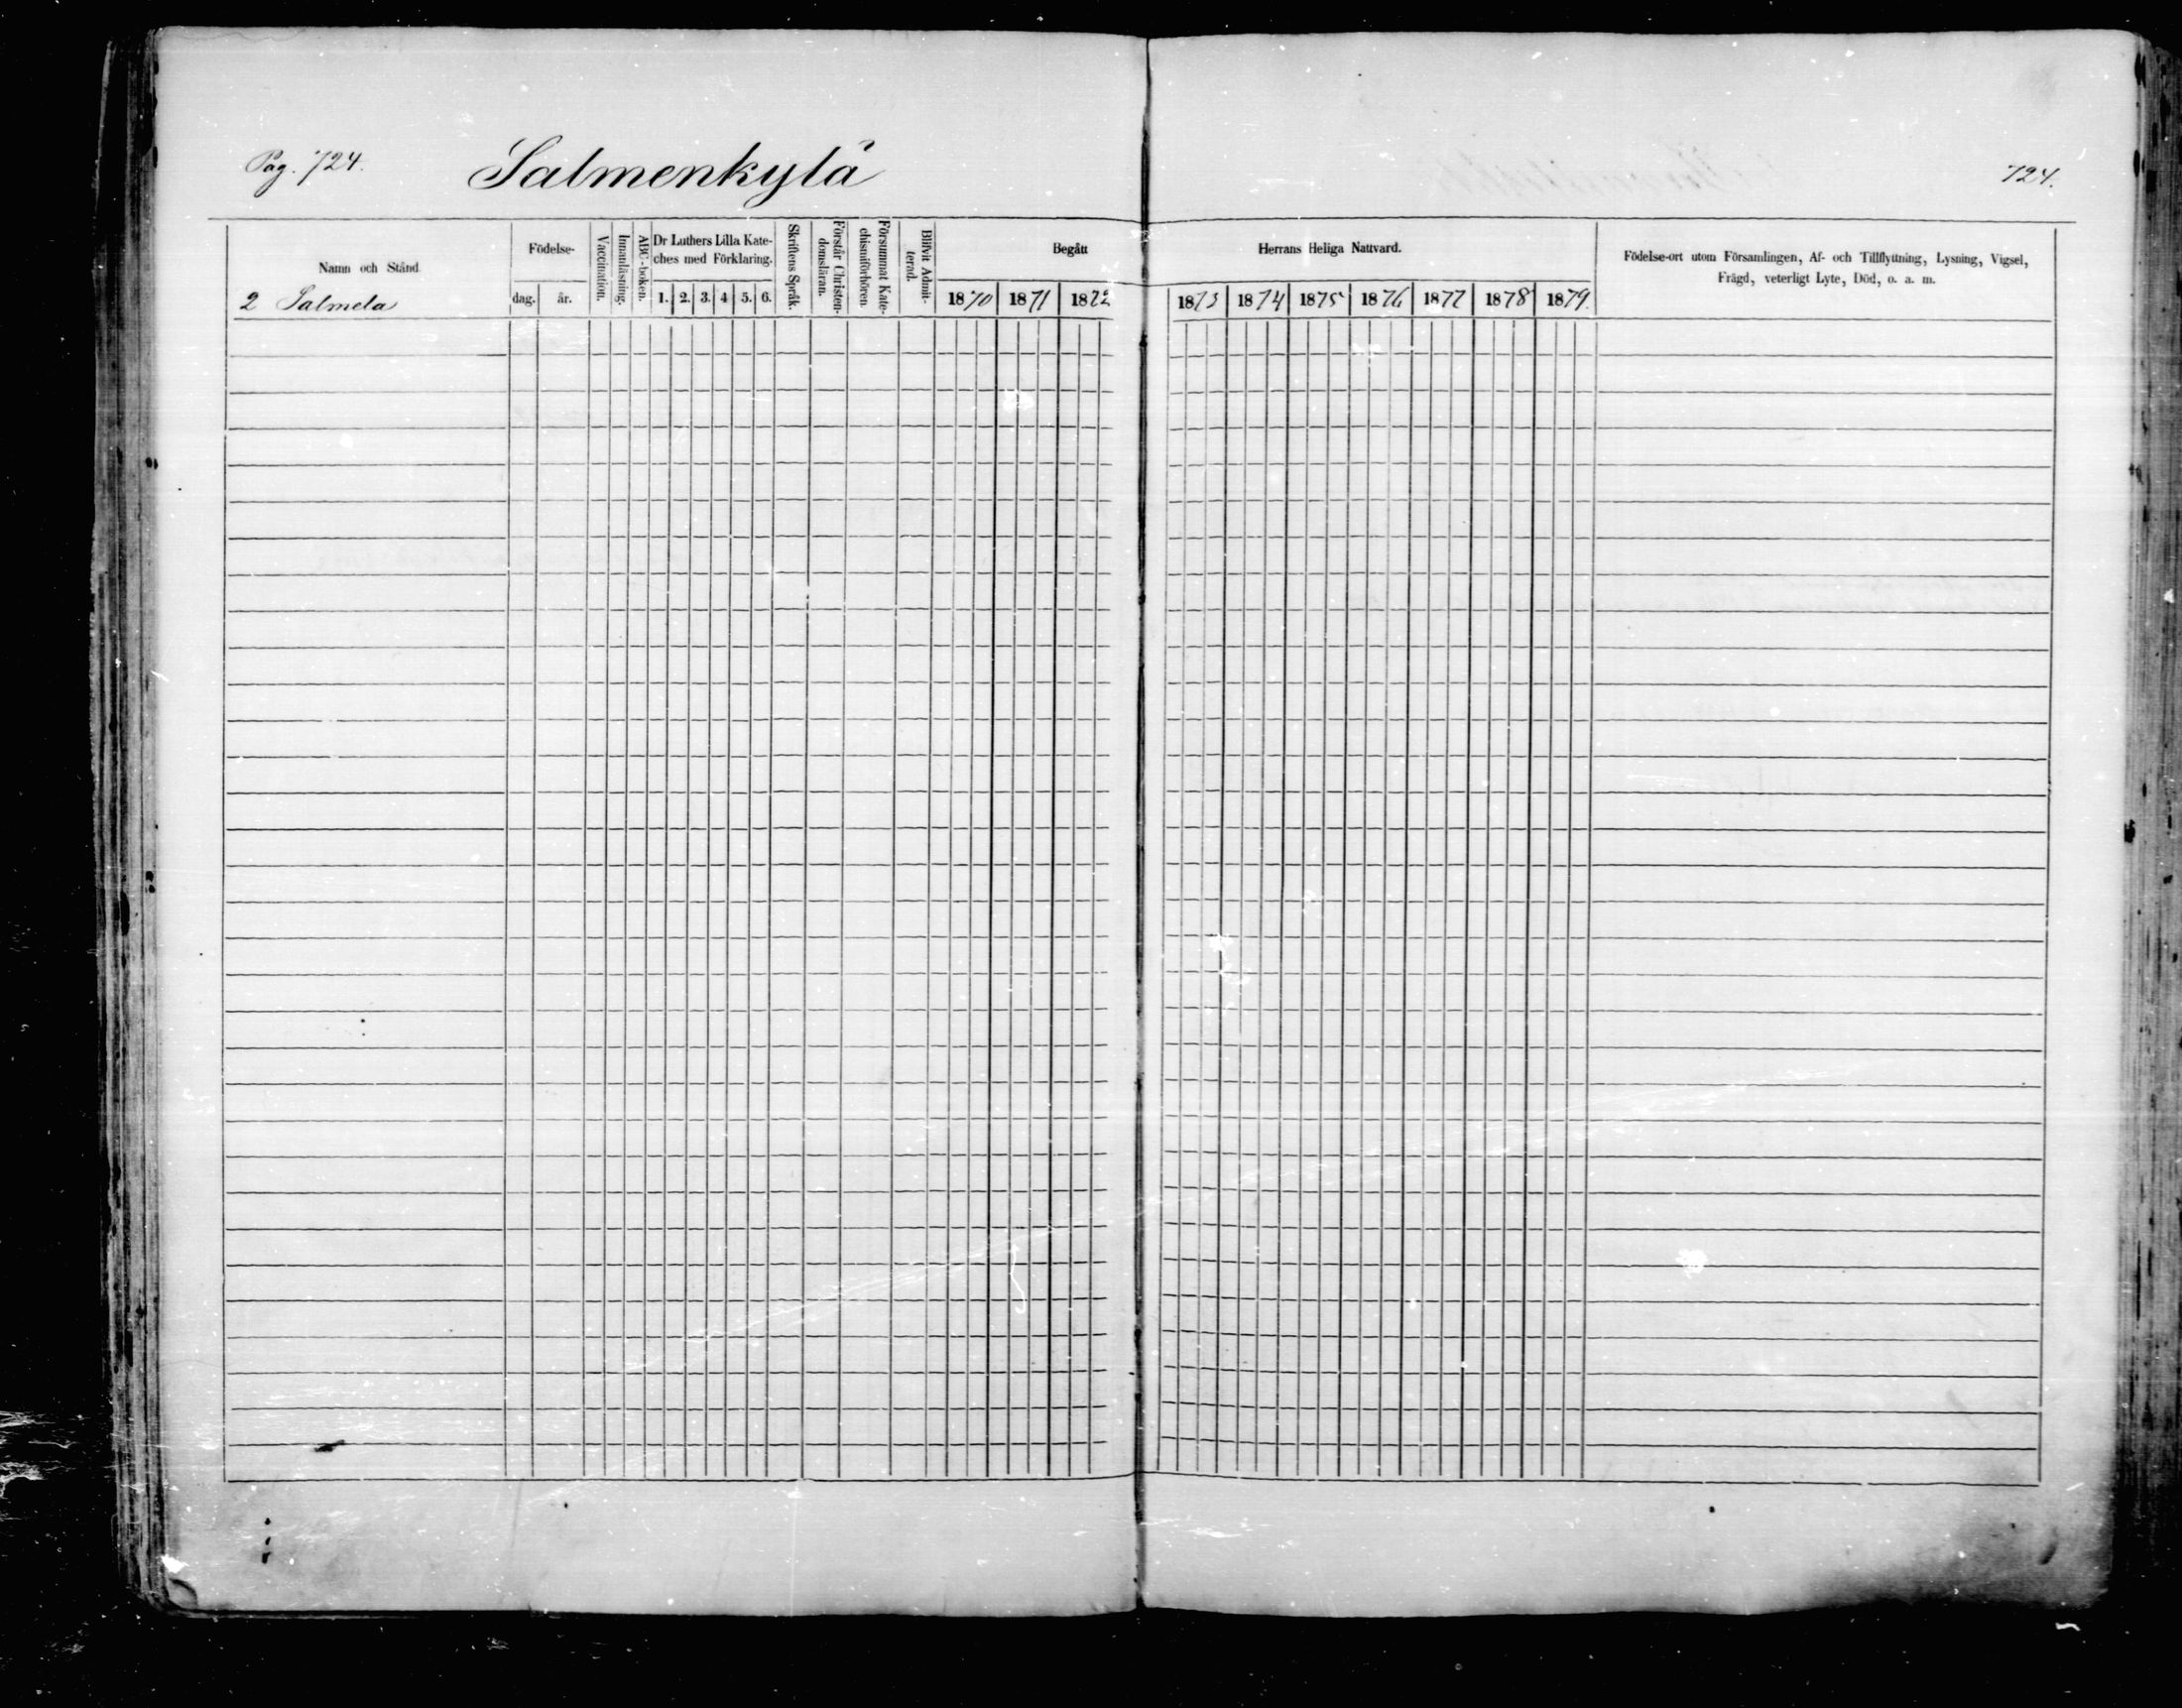 Pag. 724.
Salmenkylä
724.
Namn och Stånd
2 Salmela
Födelse-
dag. år.
Vaccination.
Innanläsning.
ABC-boken.
Dr Luthers Lilla Kate-
ches med Förklaring.
1. 2. 3. 4 5. 6.
Skriftens Språk.
Förstår Christen-
domsläran.
Försummat Kate-
chismiförhören.
Blifvit Admit-
terad.
Begått
1870 1871 1872
Herrans Heliga Nattvard.
1873 1874 1875 1876 1877 1878 1879.
Födelse-ort utom Församlingen, Af- och Tillflyttning, Lysning, Vigsel,
Frägd, veterligt Lyte, Död, o. a. m.